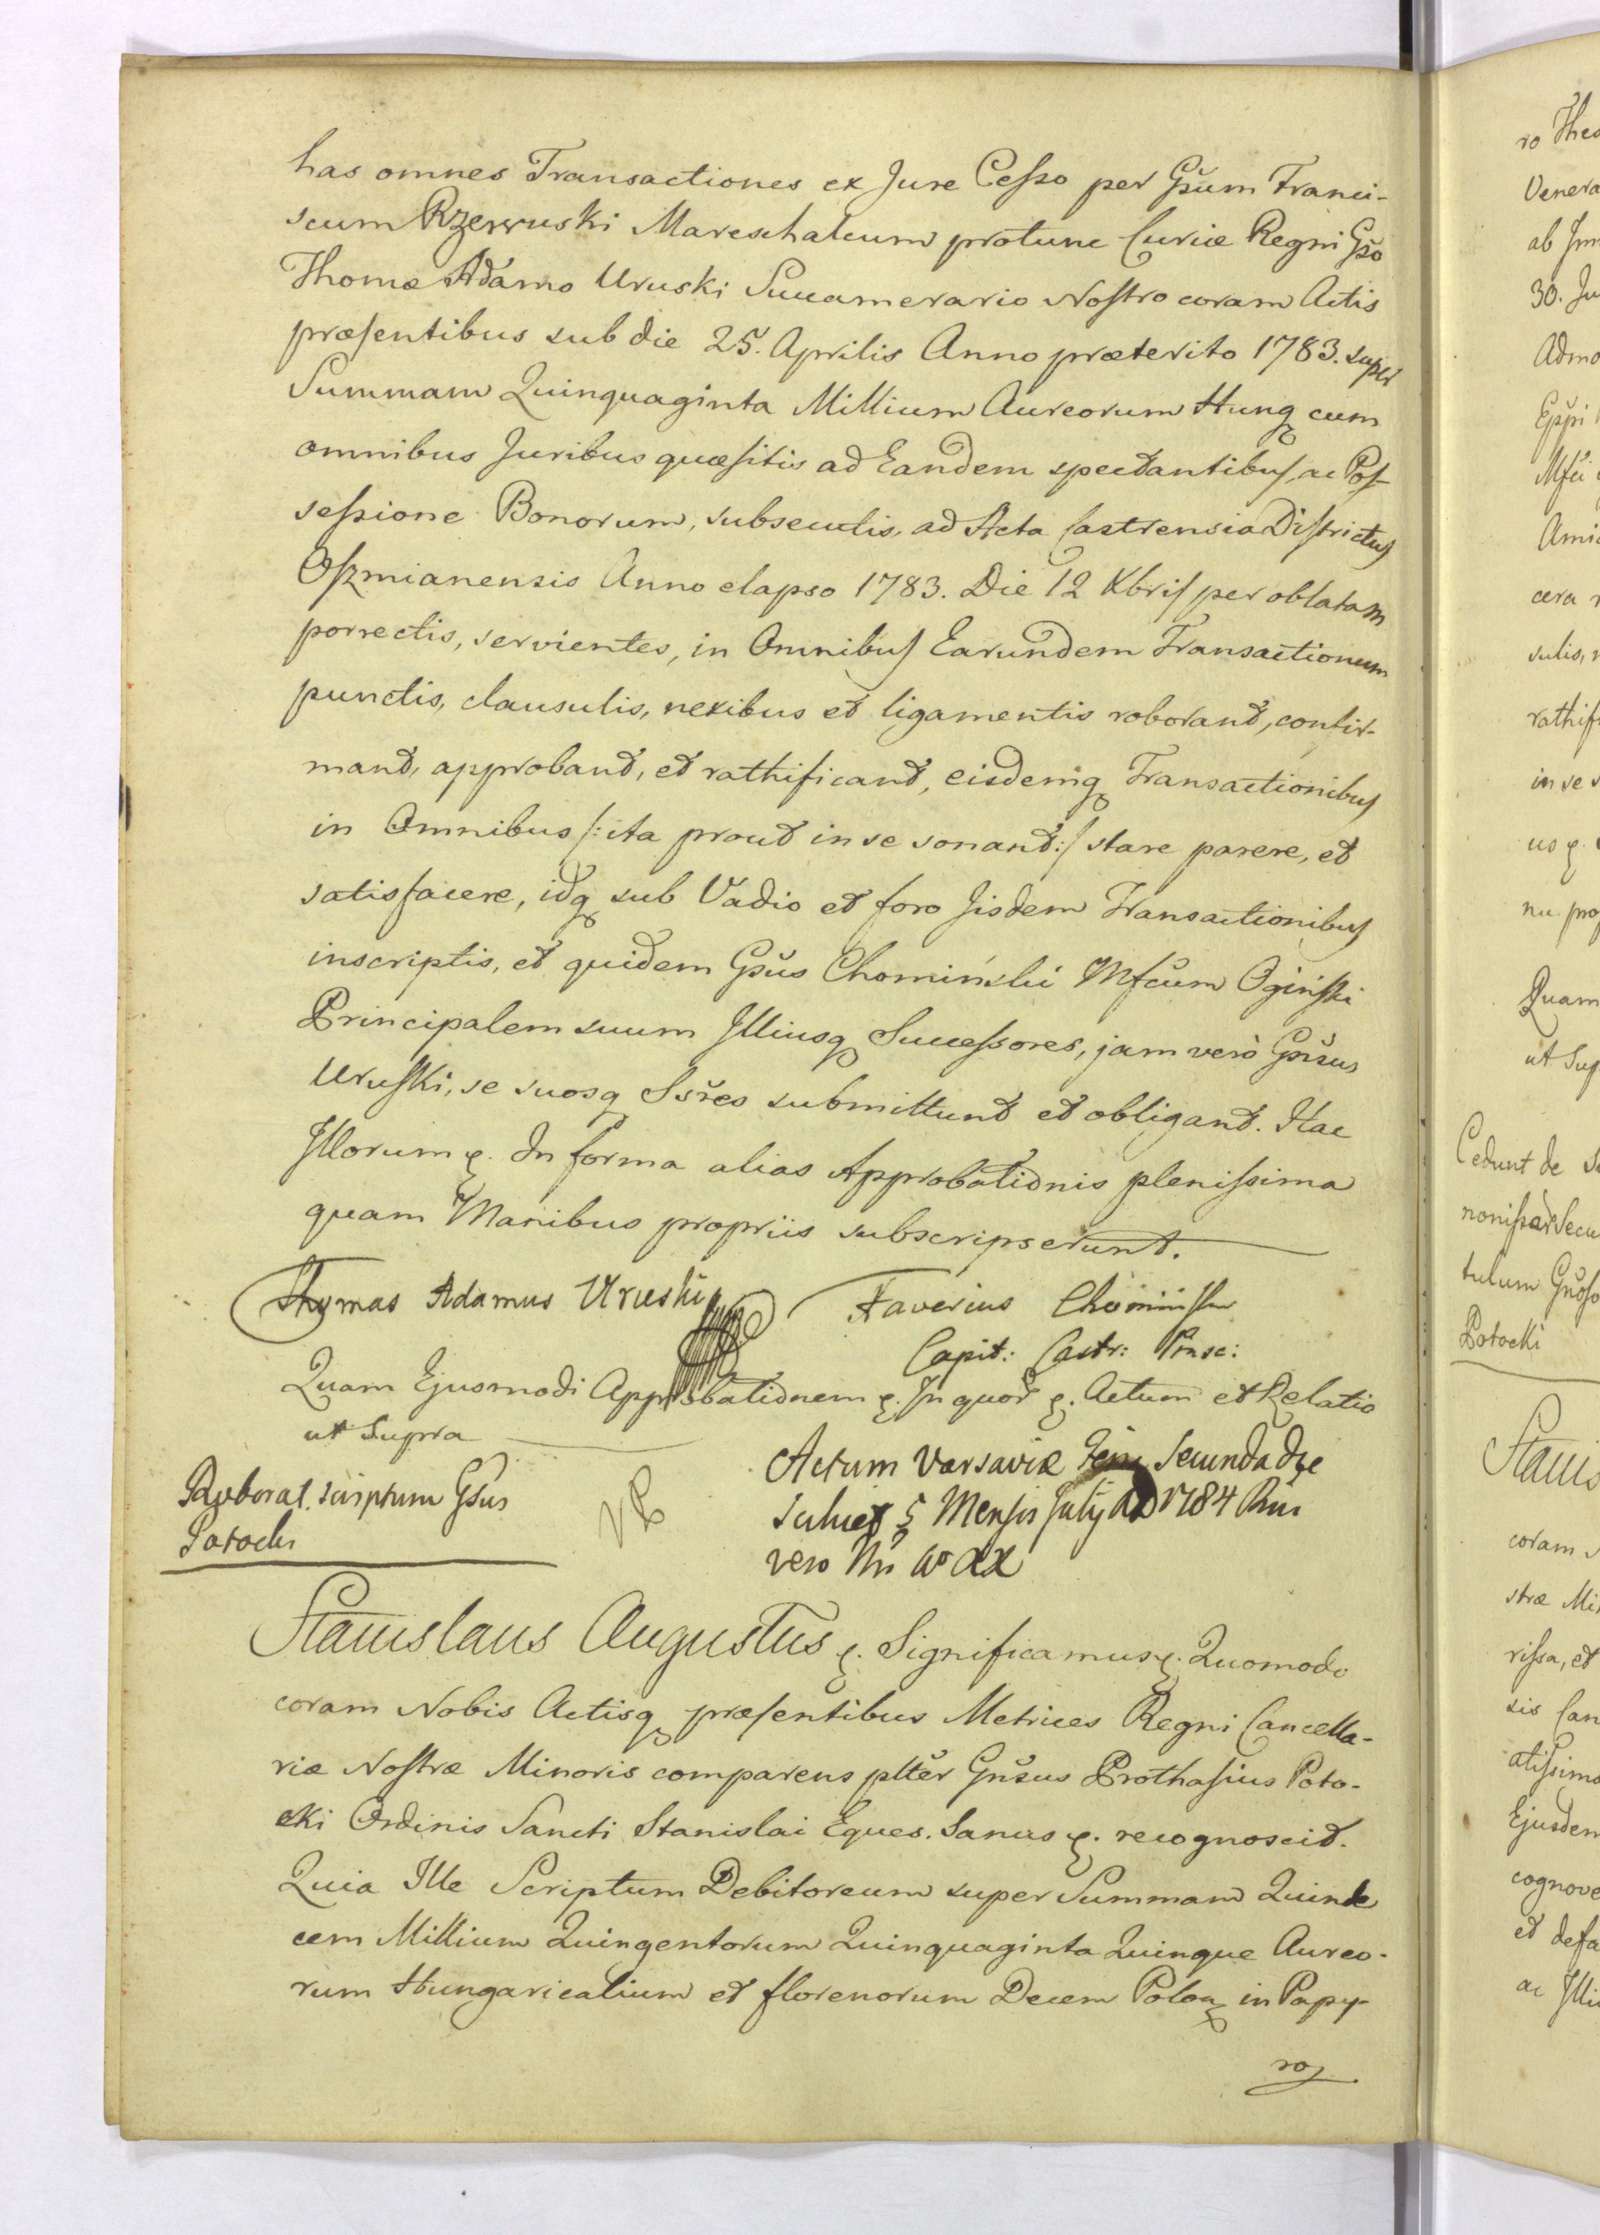 has omnes Transactiones ex Jure Cesso per Gsum Franci-
scum Rzewuski Mareschalcum protunc Curiæ Regni Gso
Thomæ Adamo Uruski Succamerario Nostro coram Actis
præsentibus sub die 25. Aprilis Anno præterito 1783. super
Summam Quinquaginta Millium Aureorum Hung cum
omnibus Juribus quæsitis ad Eandem spectantibus, ac Pos-
sessione Bonorum, subsecutis, ad Acta Castrensia Districtus
Oszmianensis Anno elapso 1783. Die 12 Xbris per oblatam
porrectis, servientes, in Omnibus Earundem Transactionum
punctis, clausulis, nexibus et ligamentis roborand, confir-
mand, approband, et rathificand, eisdemq Transactionibus
in Omnibus /: ita prout in se sonant :/ stare parere, et
satisfacere, idq sub Vadio et foro Jisdem Transactionibus
inscriptis, et quidem Gsus Chomiński Mfcum Oginski
Principalem suum Illiusq Successores, jam verò Gnsus
Uruski, se suosq Ssres submittunt et obligant. Hac
Illorum &. In forma alias Approbationis plenissima
quam Manibus propriis subscripserunt.
Thomas Adamus Uruski Xaverius Chominski
Capit: Castr: Pinsc:
Quam Ejusmodi Approbationem &. In quor &. Actum et Relatio
ut Supra
Actum Varsaviæ Feria Secunda die
Roborat scriptum Gsus
scilicet 5 Mensis July AD 1784 Rni
Potocki
vero Nri Ao XX
Stanislaus Augustus &. Significamus &. Quomodo
coram Nobis Actisq præsentibus Metrices Regni Cancella-
riæ Nostræ Minoris comparens plter Gnsus Prothasius Poto-
cki Ordinis Sancti Stanislai Eques. Sanus &. recognoscit.
Quia Ille Scriptum Debitoreum super Summam Quinde
cem Millium Quingentorum Quinquaginta Quinque Aureo-
rum Hungaricalium et florenorum Decem Polon in Papy-
ro
ro Theo
Venera
30. Ju
Admo
Amic
cera
sulis,
rathifi
in se
nu pro
Quam
ut Sup
Cedunt de
tulum Gnoso
Potocki
Stanis
coram
stræ Mi
rissa, et
sis Can
atissimo
Ejusdem
cognove
et defa
ac Illi